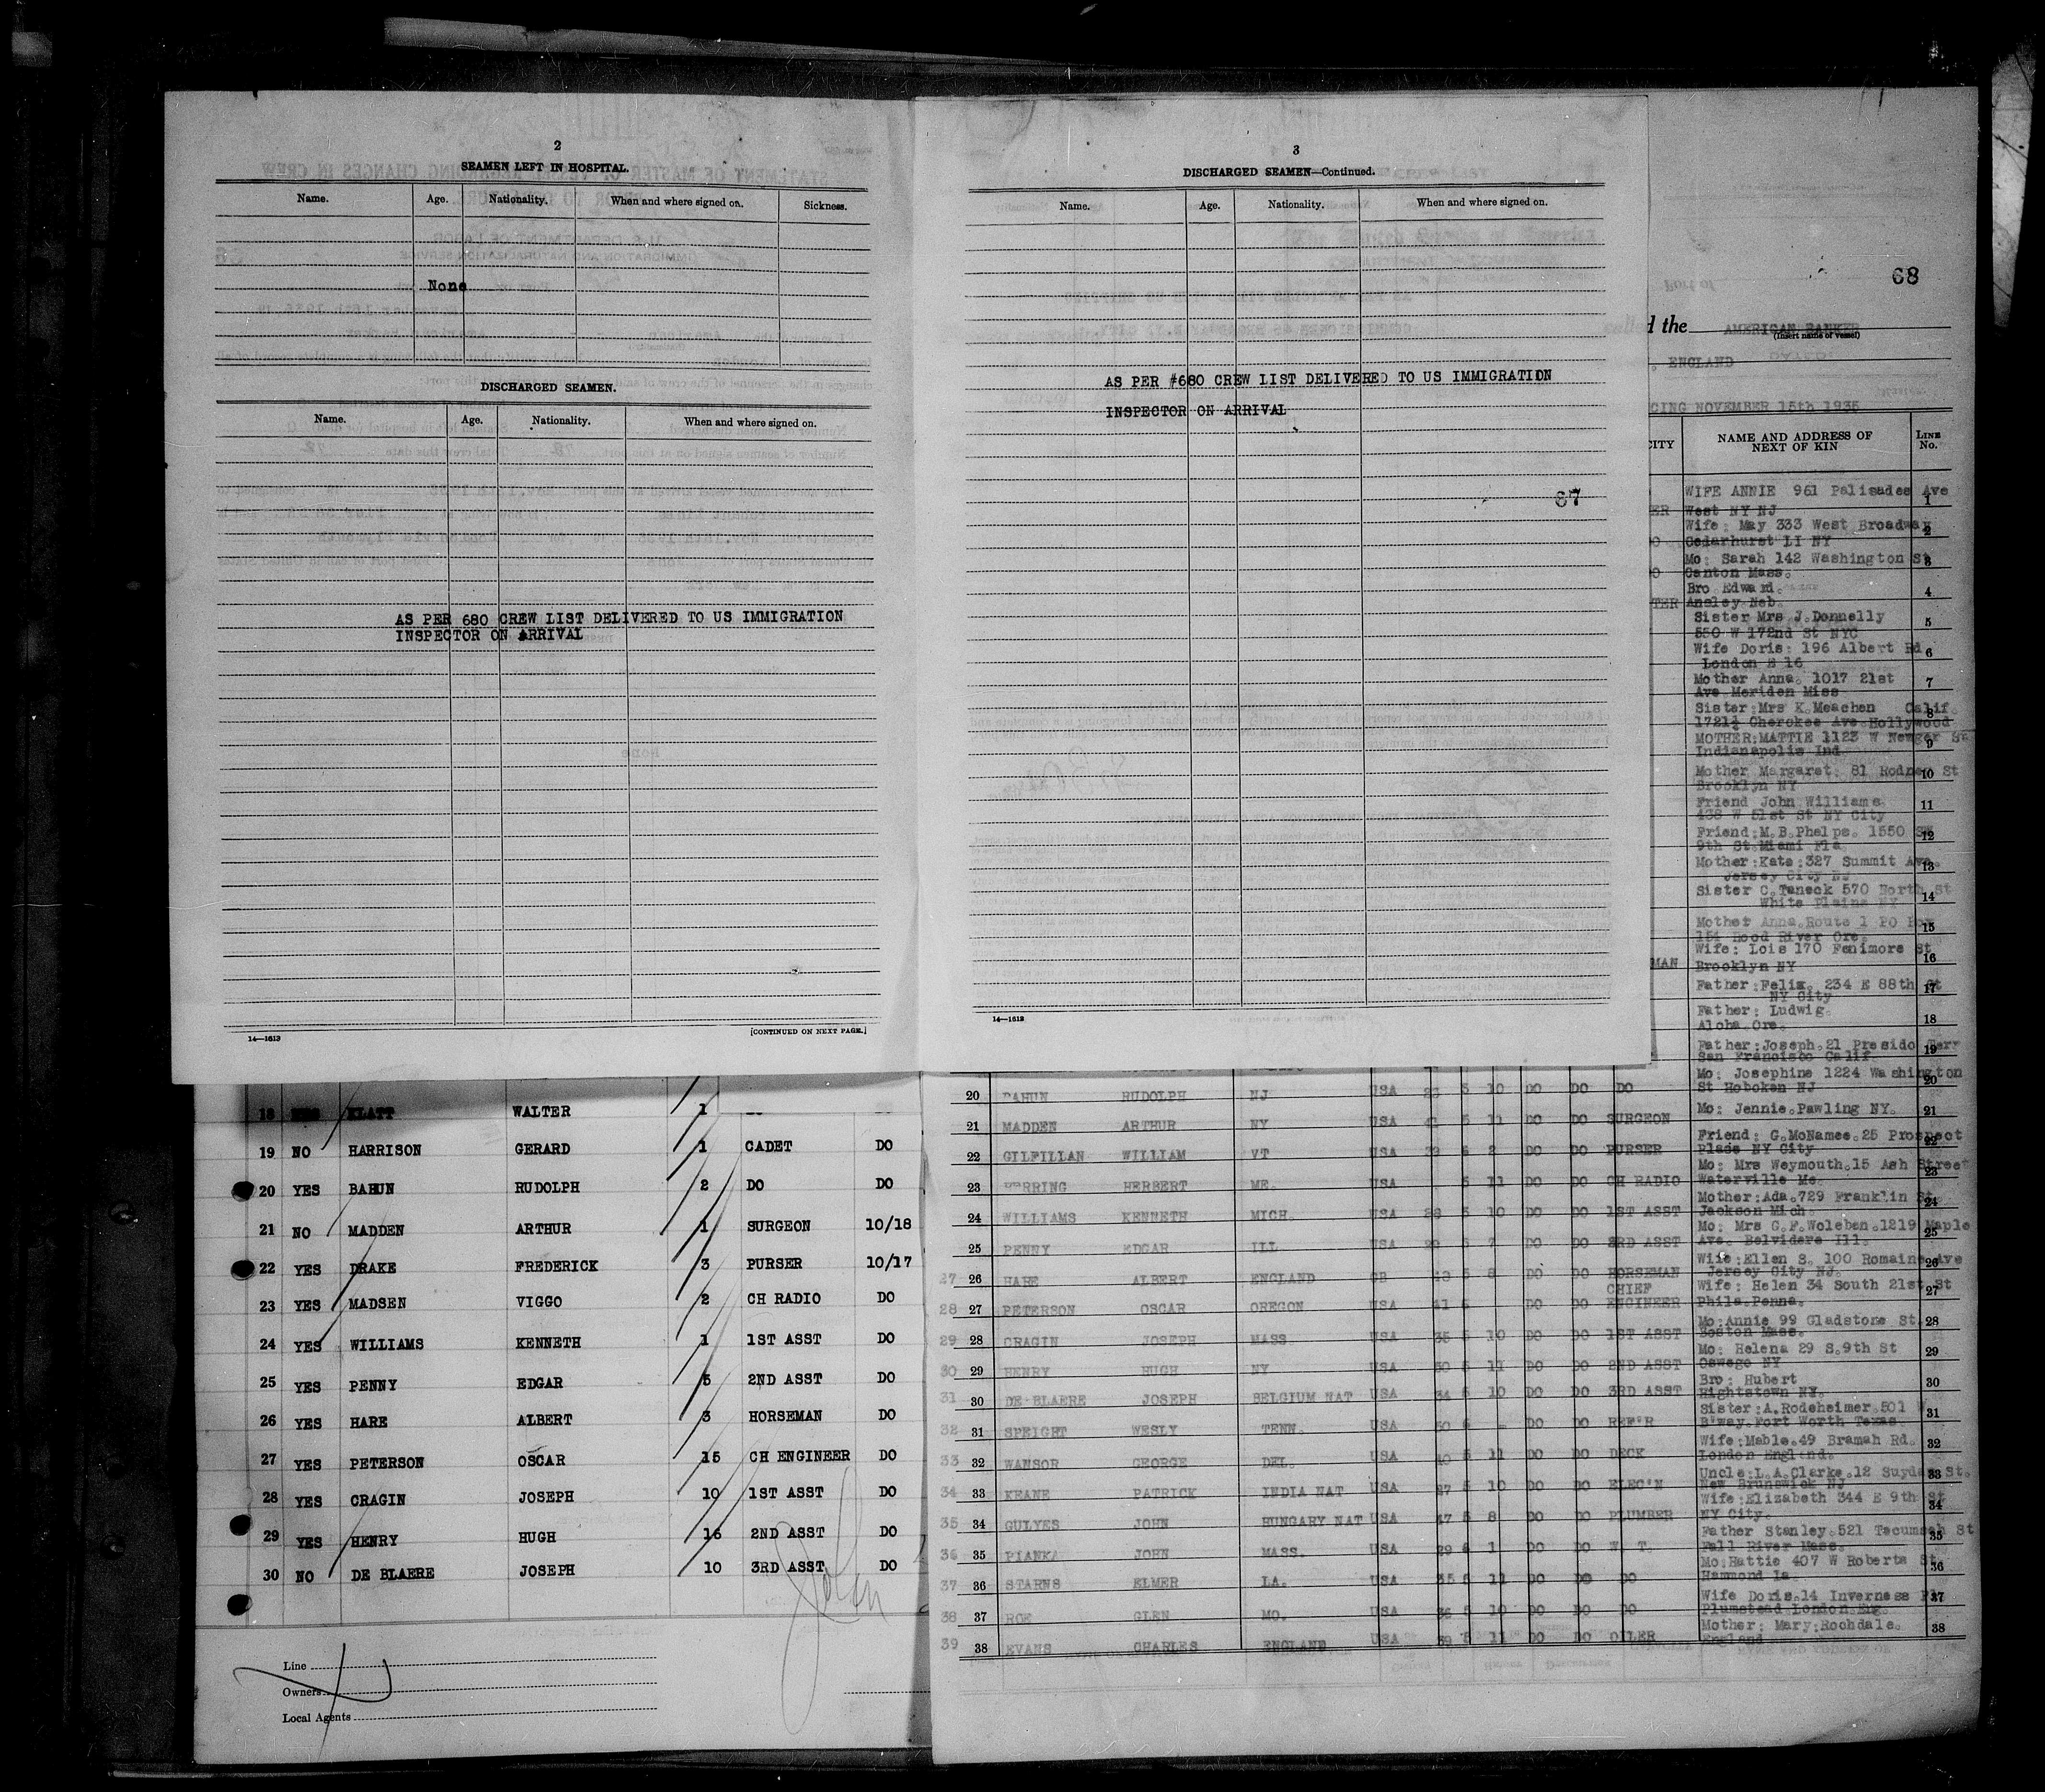 2
SEAMEN LEFT IN HOSPITAL.
Name. Age. Nationality. When and where signed on. Sickness.
None
DISCHARGED SEAMEN.
Name. Age. Nationality. When and where signed on.
AS PER 680 CREW LIST DELIVERED TO US IMMIGRATION
INSPECTOR ON ARRIVAL
14—1613
[CONTINUED ON NEXT PAGE.]
3
DISCHARGED SEAMEN—Continued.
Name. Age. Nationality. When and where signed on.
AS PER #680 CREW LIST DELIVERED TO US IMMIGRATION
INSPECTOR ON ARRIVAL
87
14—1613
68
d the AMERICAN BANKER
(Insert name of vessel)
ENGLAND
CING NOVEMBER 15th 1935
CITY NAME AND ADDRESS OF NEXT OF KIN LINE No.
WIFE ANNIE 961 Palisades Ave 1
West NY NJ
Wife: May 333 West Broadway 2
Cedarhurst LI NY
Mo: Sarah 142 Washington St 3
Canton Mass.
Bro Edward. 4
Ansley Neb.
Sister Mrs J.Donnelly 5
550 W 172nd St NYC
Wife Doris: 196 Albert Rd 6
London E 16
Mother Anna. 1017 21st 7
Ave Meriden Miss
Sister:Mrs K.Meachen Calif. 8
1721½ Cherokee Ave Hollywood
MOTHER:MATTIE 1123 W 9
Indianapolis Ind
Mother Margaret: 81 Rodney St 10
Brooklyn NY
Friend John Williams 11
438 W 51st St NY City
Friend:M.B.Phelps. 1550 12
9th St.Miami Fla
Mother:Kate:327 Summit Ave. 13
Jersey City NJ
Sister C.Taneck 570 North St 14
White Plains NY
Mother Anna.Route 1 PO Box 15
154 Hood River Ore.
Wife: Lois 170 Fenimore St 16
MAN Brooklyn NY
Father:Felix. 234 E 88th St 17
NY City
Father: Ludwig. 18
Aloha Ore.
Father:Joseph.21 Presido Terr 19
San Francisco Calif.
Mo: Josephine 1224 Washington 20
St Hoboken NJ
Mo: Jennie.Pawling NY. 21
Friend: G.McNamee.25 Prospect 22
Place NY City
Mo: Mrs Weymouth.15 Ash Street 23
Waterville Me.
Mother:Ada.729 Franklin St. 24
Jackson Mich.
Mo: Mrs G.F.Woleben.1219 Maple 25
Ave. Belvidere Ill.
Wife:Ellen S. 100 Romaine Ave 26
Jersey City NJ.
Wife: Helen 34 South 21st St 27
Phila Penna.
Mo:Annie 99 Gladstone St. 28
Boston Mass.
Mo: Helena 29 S.9th St 29
Oswego NY
Bro: Hubert 30
Hightstown NY.
Sister:A.Rodeheimer.501 31
B'way.Fort Worth Texas.
Wife:Mable.49 Bramah Rd. 32
London England.
Uncle:L.A.Clarke.12 Suydam St. 33
New Brunswick NJ
Wife:Elizabeth 344 E 9th St 34
NY City.
Father Stanley.521 Tecumseh St 35
Fall River Mass.
Mo:Hattie 407 W Roberts St. 36
Hammond La
Wife Doris.14 Inverness Pl 37
Plumstead London Eng.
Mother: Mary:Rochdale. 38
England
18 KLATT WALTER 1
19 NO HARRISON GERARD 1 CADET DO
20 YES BAHUN RUDOLPH 2 DO DO
21 NO MADDEN ARTHUR 1 SURGEON 10/18
22 YES DRAKE FREDERICK 3 PURSER 10/17
23 YES MADSEN VIGGO 2 CH RADIO DO
24 YES WILLIAMS KENNETH 1 1ST ASST DO
25 YES PENNY EDGAR 5 2ND ASST DO
26 YES HARE ALBERT 3 HORSEMAN DO
27 YES PETERSON OSCAR 15 CH ENGINEER DO
28 YES CRAGIN JOSEPH 10 1ST ASST DO
29 YES HENRY HUGH 16 2ND ASST DO
30 NO DE BLAERE JOSEPH 10 3RD ASST DO
Line
Owners
Local Agents
20 BAHUN RUDOLPH NJ USA 23 5 10 DO DO DO
21 MADDEN ARTHUR NY USA 41 5 11 DO DO SURGEON
22 GILFILLAN WILLIAM VT USA 6 2 DO DO PURSER
23 HERRING HERBERT ME. USA 5 11 DO DO CH RADIO
24 WILLIAMS KENNETH MICH. USA 28 5 10 DO DO 1ST ASST
25 PENNY EDGAR ILL USA 5 7 DO DO 3RD ASST
27 26 HARE ALBERT ENGLAND GB 5 8 DO DO HORSEMAN
28 27 PETERSON OSCAR OREGON USA 41 6 DO DO CHIEF ENGINEER
29 28 CRAGIN JOSEPH MASS USA 35 5 10 DO DO 1ST ASST
30 29 HENRY HUGH NY USA 50 5 11 DO DO 2ND ASST
31 30 DE BLAERE JOSEPH BELGIUM NAT USA 34 5 10 DO DO 3RD ASST
32 31 SPEIGHT WESLY TENN. USA 50 6 DO DO REF'R
33 32 WANSOR GEORGE DEL. USA 40 5 11 DO DO DECK
34 33 KEANE PATRICK INDIA NAT USA 5 10 DO DO ELEC'N
35 34 GULYES JOHN HUNGARY NAT USA 47 5 8 DO DO PLUMBER
36 35 PIANKA JOHN MASS. USA 29 6 1 DO DO W T.
37 36 STARNS ELMER LA. USA 35 5 11 DO DO DO
38 37 ROE GLEN MO. USA 5 10 DO DO DO
39 38 EVANS CHARLES ENGLAND USA 39 5 11 DO DO OILER